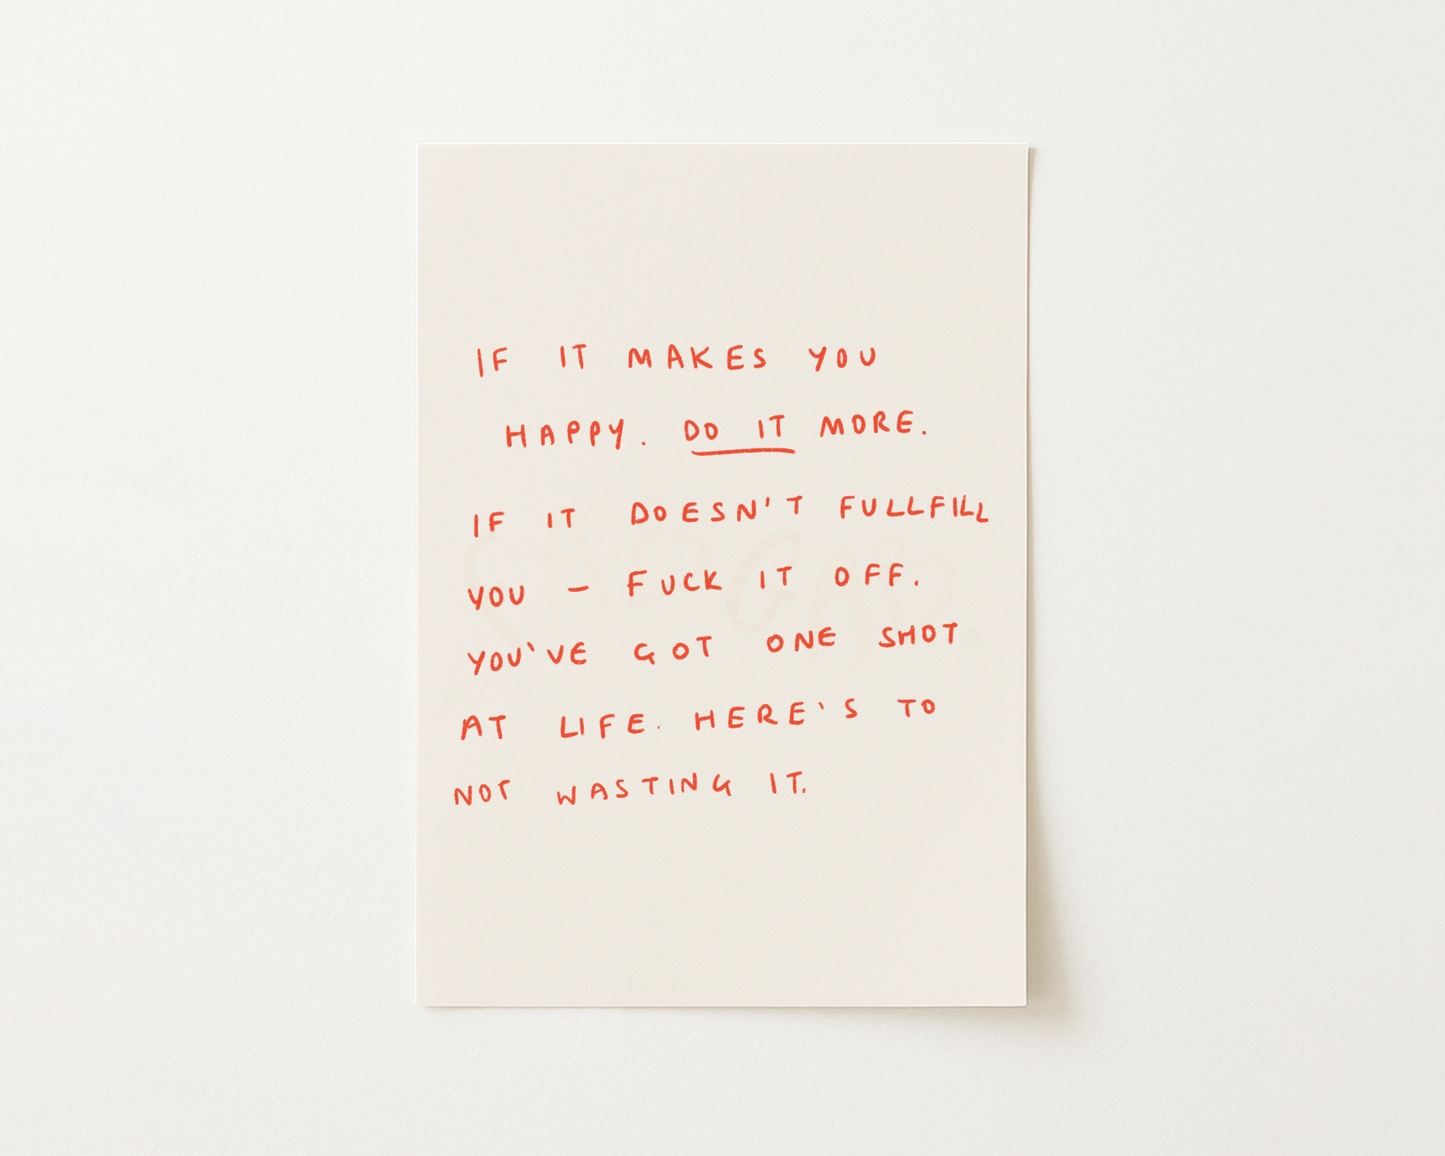 IF IT MAKES YOU
HAPPY. DO IT MORE.
IF IT DOESN'T FULLFILL
YOU – FUCK IT OFF.
YOU'VE GOT ONE SHOT
AT LIFE. HERE'S TO
NOT WASTING IT.